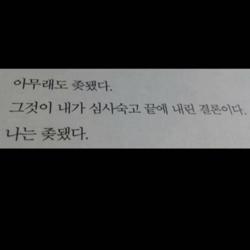 아무래도 좆됐다.
그것이 내가 심사숙고 끝에 내린 결론이다.
나는 좆됐다.